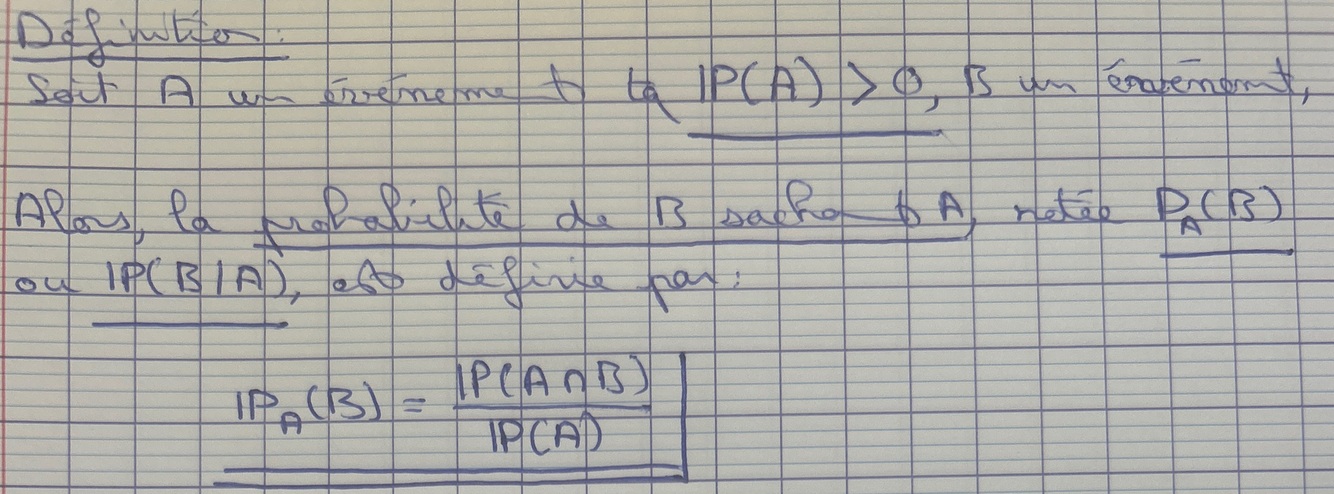 Définition:
Soit A un événement tq IP(A) > 0, B un événement,
Alors, la probabilité de B sachant A, notée P_A(B)
ou IP(B|A), est définie par:
IP_A(B) = IP(A∩B) / IP(A)